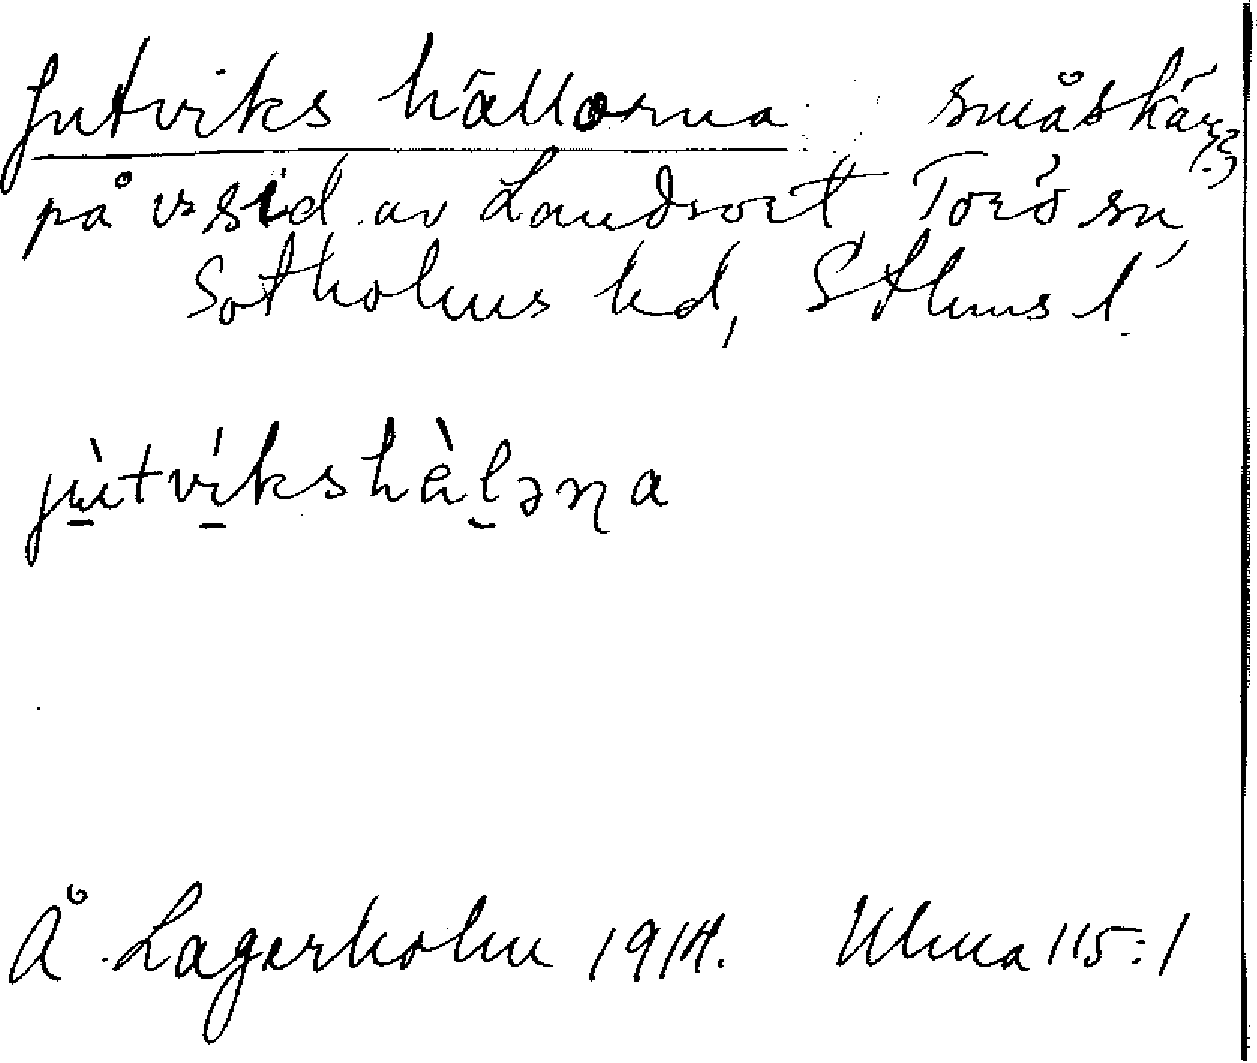 Jutviks hällorna småskär (?)
på v. sid. av Landsort Torö sn,
Sotholms hd, Sthms l.
jùtvíkshàlərna
Å. Lagerholm 1914. Ulma 115:1